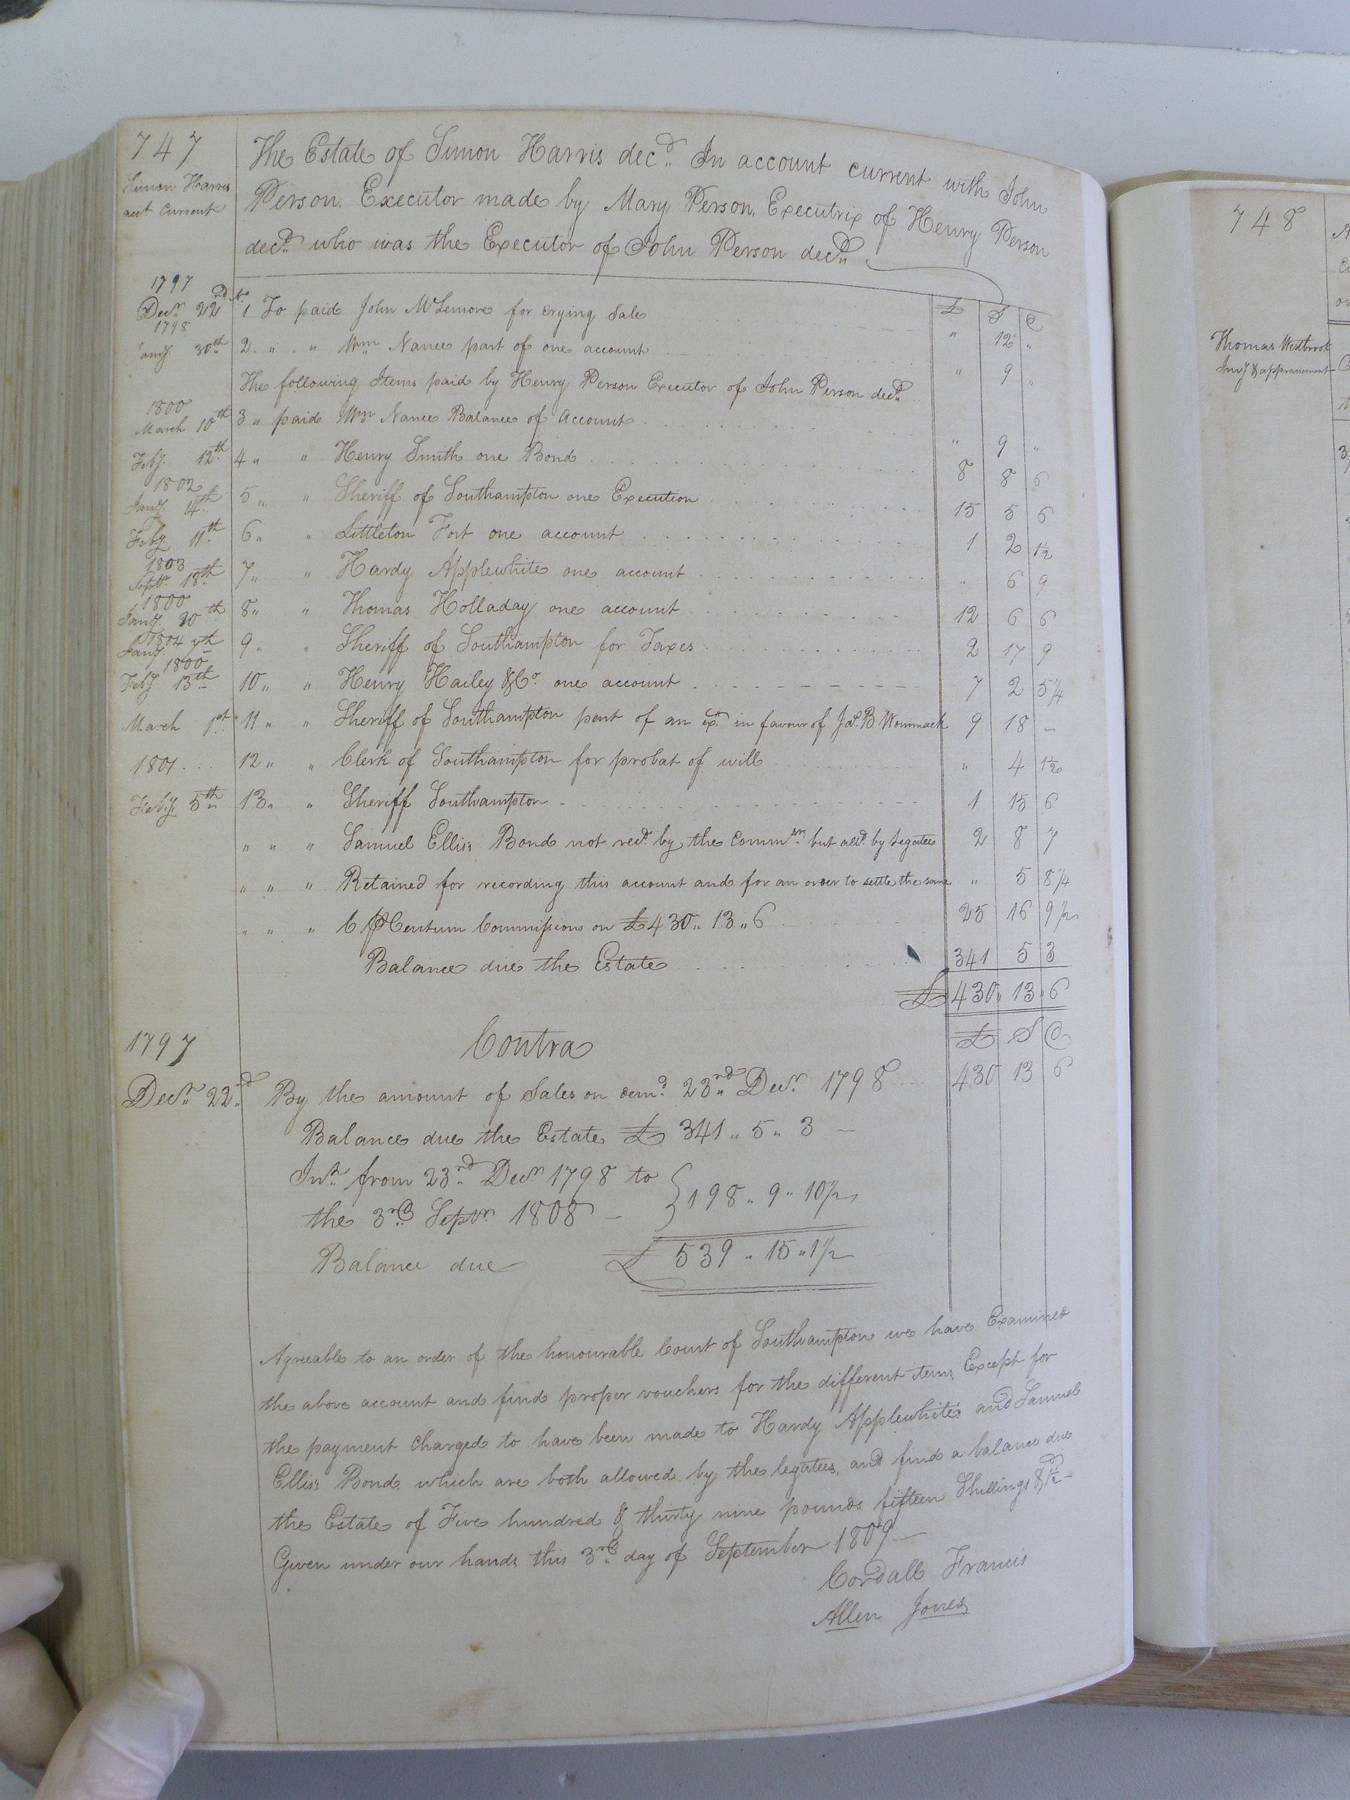 747
The Estate of Simon Harris decd. In account current with John
Simon Harris
acct Current
Person Executor made by Mary Person Executrix of Henry Person
decd. who was the Executor of John Person decd.
£ S
1797
Decr. 22d No 1 To paid John McLemore for crying Sale " 12 "
1798
Jany. 30th 2 " " Wm Nance part of one account " 9 "
The following Items paid by Henry Person Executor of John Person decd.
1800
March 10th 3 " paid Wm Nance Balance of Account " 9 "
Feby. 12th 4 " " Henry Smith one Bond 8 8 6
1802
Jany. 4th 5 " " Sheriff of Southampton one Execution 15 5 6
Feby. 11th 6 " " Littleton Fort one account 1 2 1/2
1803
Septr. 13th 7 " " Hardy Applewhite one account " 6 9
1800
Jany. 20th 8 " " Thomas Holladay one account 12 6 6
1804
Jany. 9 " " Sheriff of Southampton for Taxes 2 17 9
1800
Feby. 13th 10 " " Henry Hailey & Co. one account 7 2 5 1/4
March 1st 11 " " Sheriff of Southampton part of an ex. in favour of Jas. B Wommack 9 18 —
1801 12 " " Clerk of Southampton for probat of will " 4 1 1/2
Feby. 5th 13 " " Sheriff Southampton 1 15 6
" " " Samuel Ellis's Bond not recd. by the Commrs. but alld. by Legatees 2 8 7
" " " Retained for recording this account and for an order to settle the same " 5 8 1/4
" " " 6 P Centum Commissions on £430 " 13 " 6 25 16 9 1/2
Balance due the Estate 341 5 3
£ 430 " 13 " 6
1797 Contra £ S
Decr. 22nd By the amount of Sales on demd. 23rd Decr. 1798 430 13 6
Balance due the Estate £ 341 " 5 " 3 —
Intr. from 23rd Decr 1798 to
the 3rd Septr. 1808 — } 198 " 9 " 10 1/2
Balance due £ 539 " 15 " 1 1/2
Agreeable to an order of the honourable Court of Southampton we have Examined
the above account and find proper vouchers for the different items Except for
the payment charged to have been made to Hardy Applewhite and Samuel
Ellis's Bond which are both allowed by the legatees, and find a balance due
the Estate of Five hundred & thirty nine pounds fifteen Shillings &
Given under our hands this 3rd day of September 1809 —
Cordall Francis
Allen Jones
748
Thomas Westbrook
Invy & appraisement